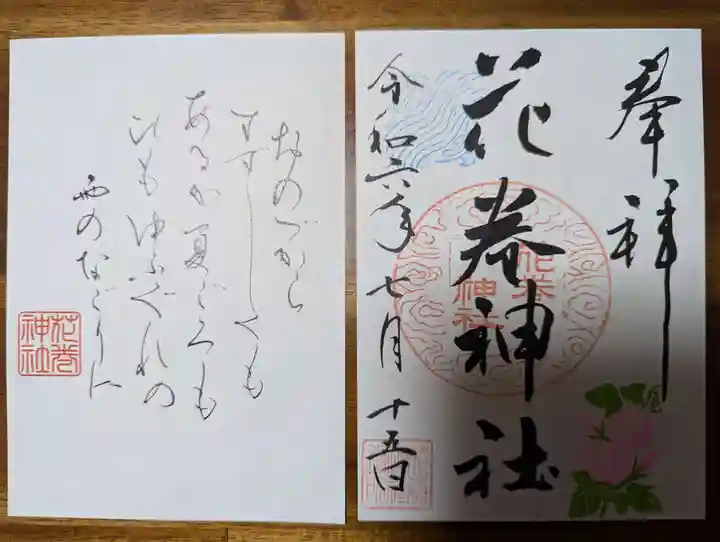 奉拝
花巻神社
花巻神社
令和六年七月十五日
おのづから
すずしくも
あるか夏ごろも
ひもゆふぐれの
雨のなごりに
花巻神社